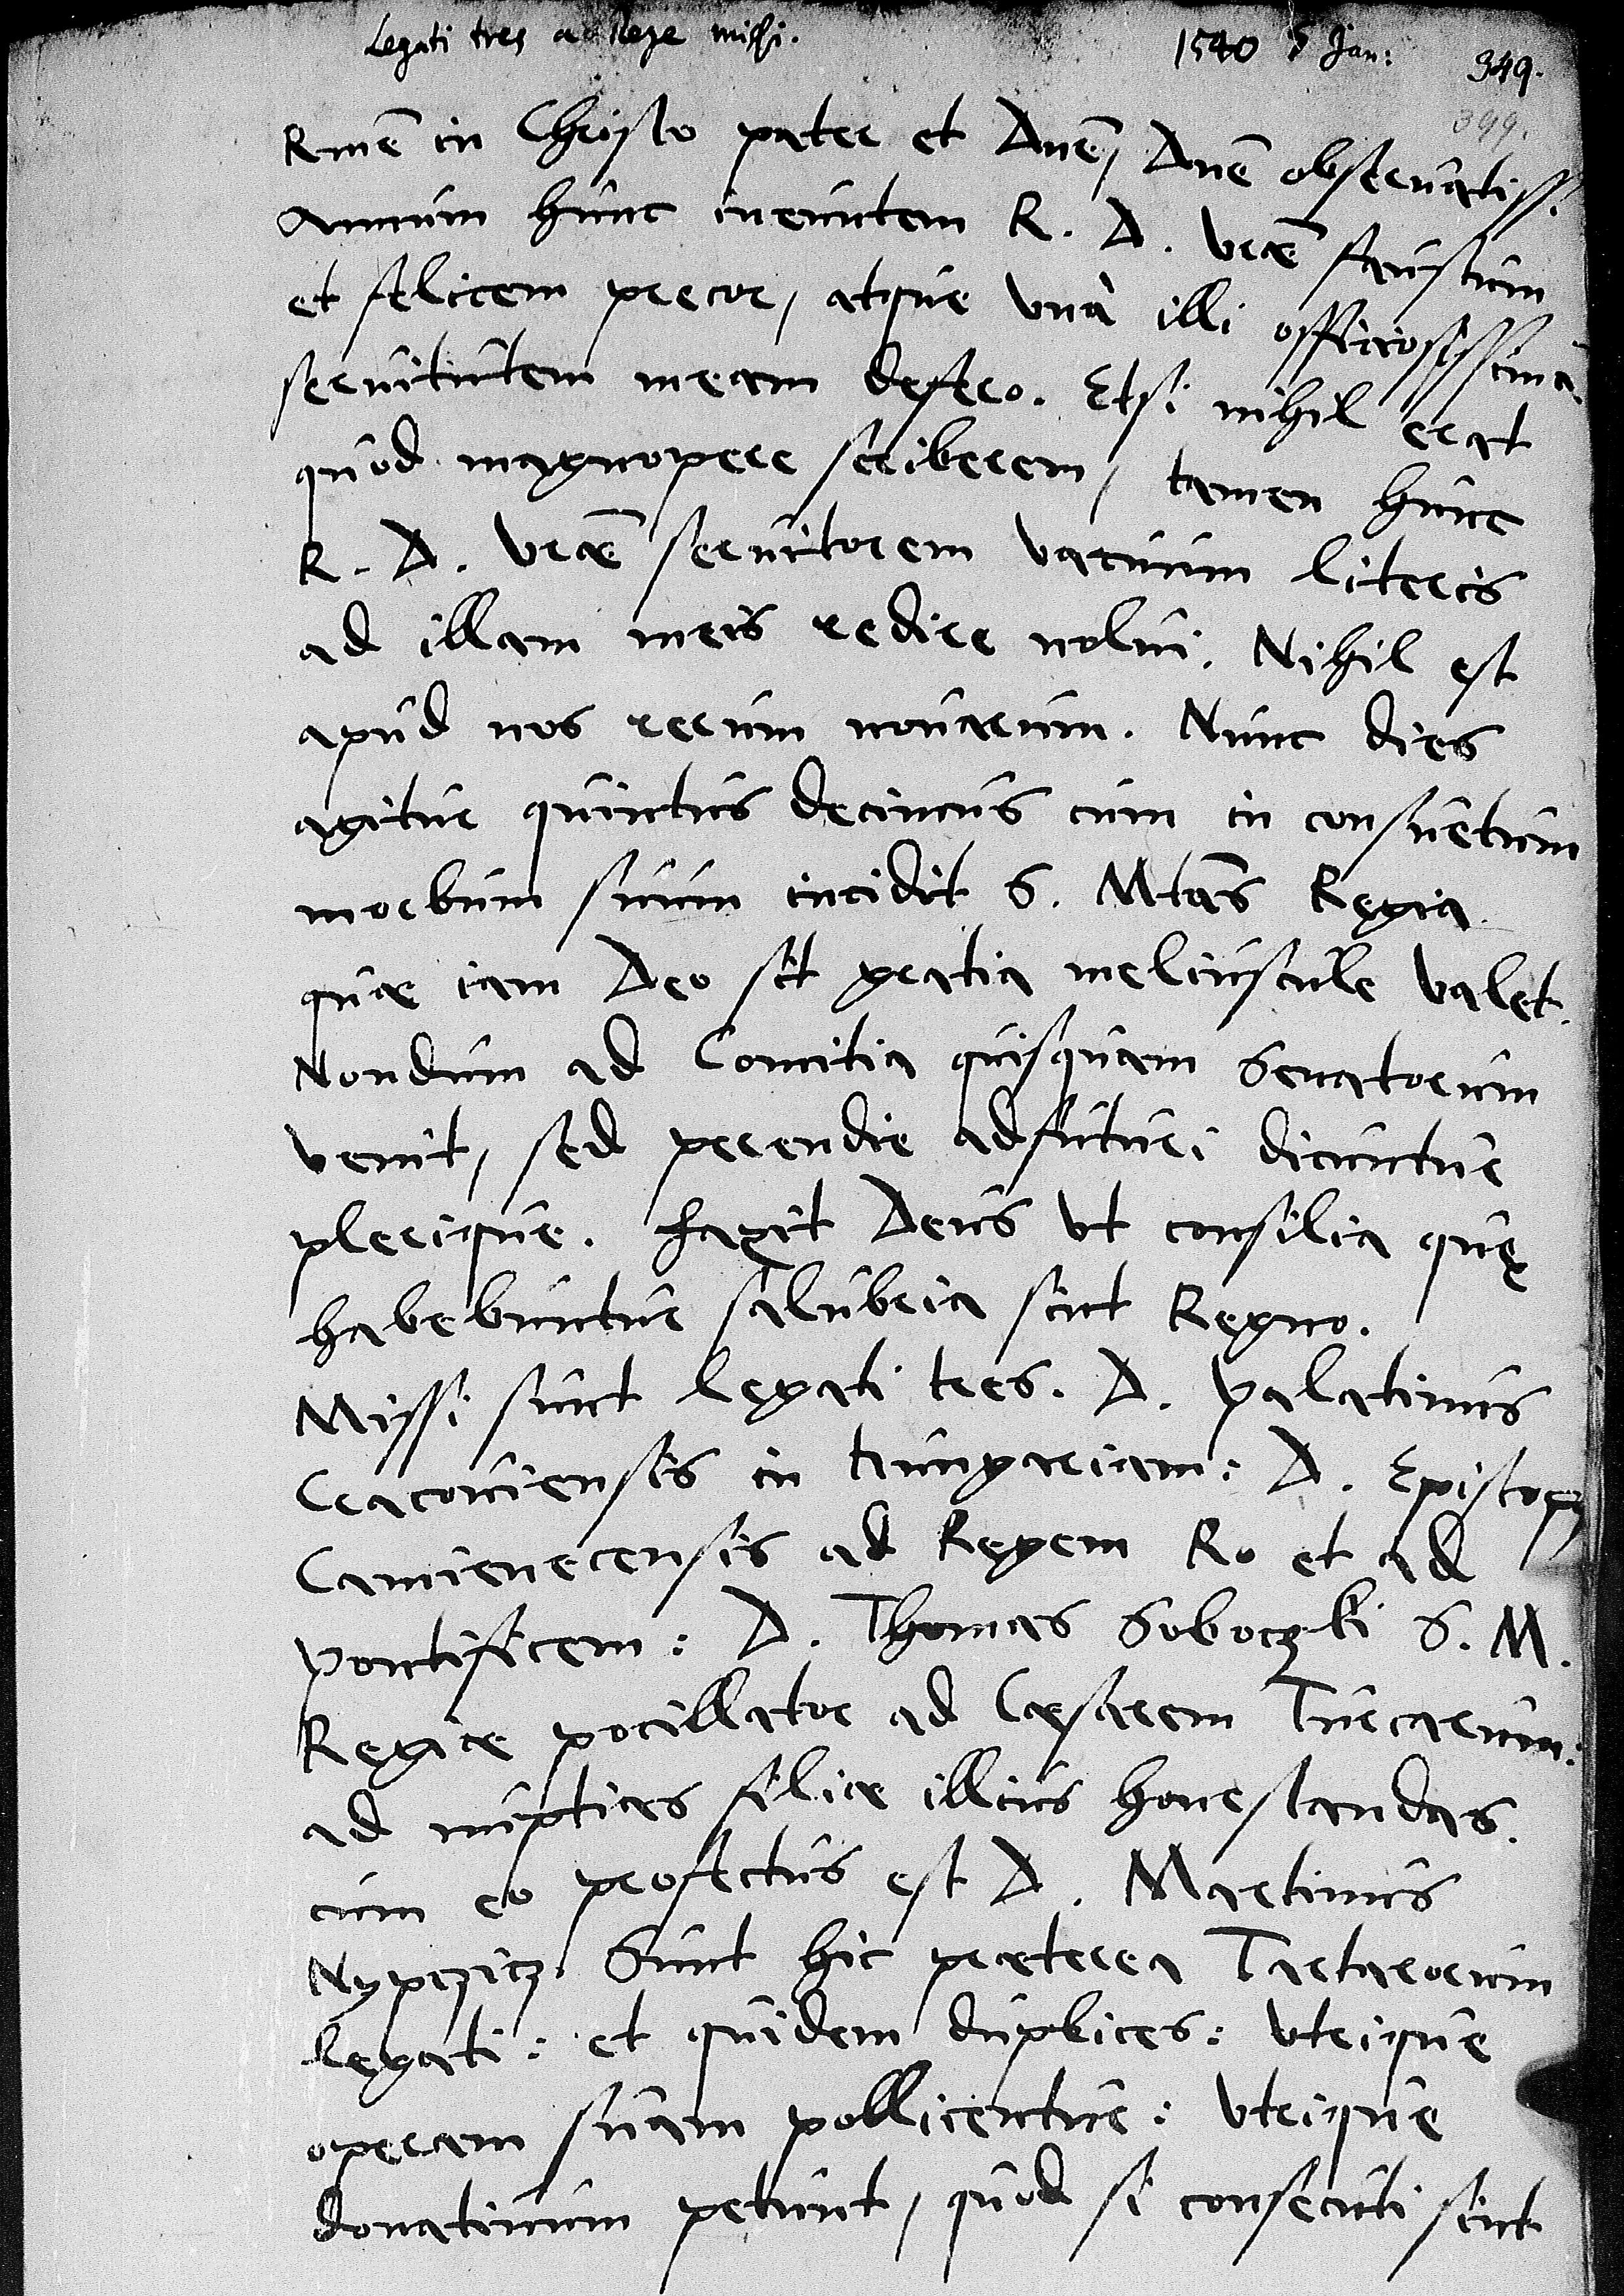 Legati tres a Rege missi.
1540 5 Jan:
349.
399.
Rme in Christo pater et Dne, Dne obseruatiss.
Annum hunc ineuntem R. D. vrae faustum
et felicem precor, atque vnà illi officiosissimā
seruitutem meam defero. Etsi nihil erat
quod magnopere scriberem, tamen hunc
R. D. vrae seruitorem vacuum literis
ad illam meis redire nolui. Nihil est
apud nos rerum nouarum. Nunc dies
agitur quintus decimus cum in consuetum
morbum suum incidit S. Mtas Regia
quae iam Deo sit gratia meliuscule valet.
Nondum ad Comitia quisquam Senatorum
venit, sed perendie adfuturi dicuntur
plerique. Faxit Deus vt consilia quę
habebuntur salubria sint Regno.
Missi sunt legati tres. D. Palatinus
Cracouiensis in Hungariam: D. Episcopus
Camienecensis ad Regem Ro et ad
Pontificem: D. Thomas Soboczki S. M.
Regiae pocillator ad Caesarem Turcarum:
ad nuptias filiae illius honestandas.
cum eo profectus est D. Martinus
Nypczicz. Sunt hic praeterea Tartarorum
legati: et quidem duplices: vtrique
operam suam pollicentur: vtrique
donatiuum petunt, quod si consecuti sint